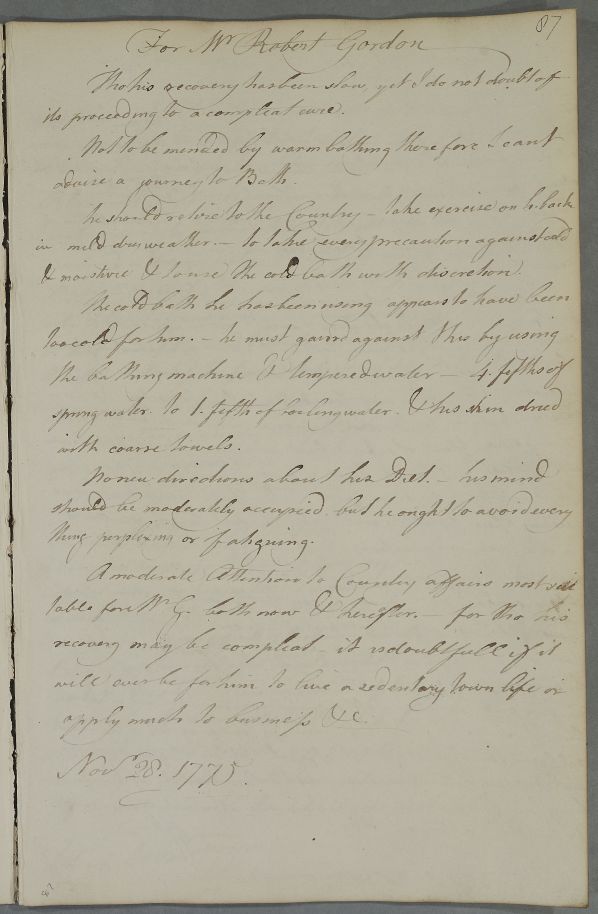 87
For Mr Robert Gordon
Tho his recovery has been slow, yet I do not doubt of
its proceeding to a compleat cure.
Not to be mended by warm bathing therefore I cant
advise a journey to Bath.
he should retire to the Country – take exercise on h.back
in mild dry weather. – to take every precaution against cold
& moisture & to use the cold bath with discretion.
the cold bath he has been using appears to have been
too cold for him. – he must gaurd against this by using
the bathing machine & tempered water – 4. fifths of
spring water to 1. fifth of boiling water. & his skin dried
with coarse towels.
No new directions about his Diet. – his mind
should be moderately occupied but he ought to avoid every
thing perplexing or fatiguing.
A moderate Attention to Country affairs most suit
table for Mr G. both now & herafter. – for tho his
recovery may be compleat – it is doubtfull if it
will ever be for him to live a sedentary town life or
apply much to business &c.
Novr 28. 1775.
87